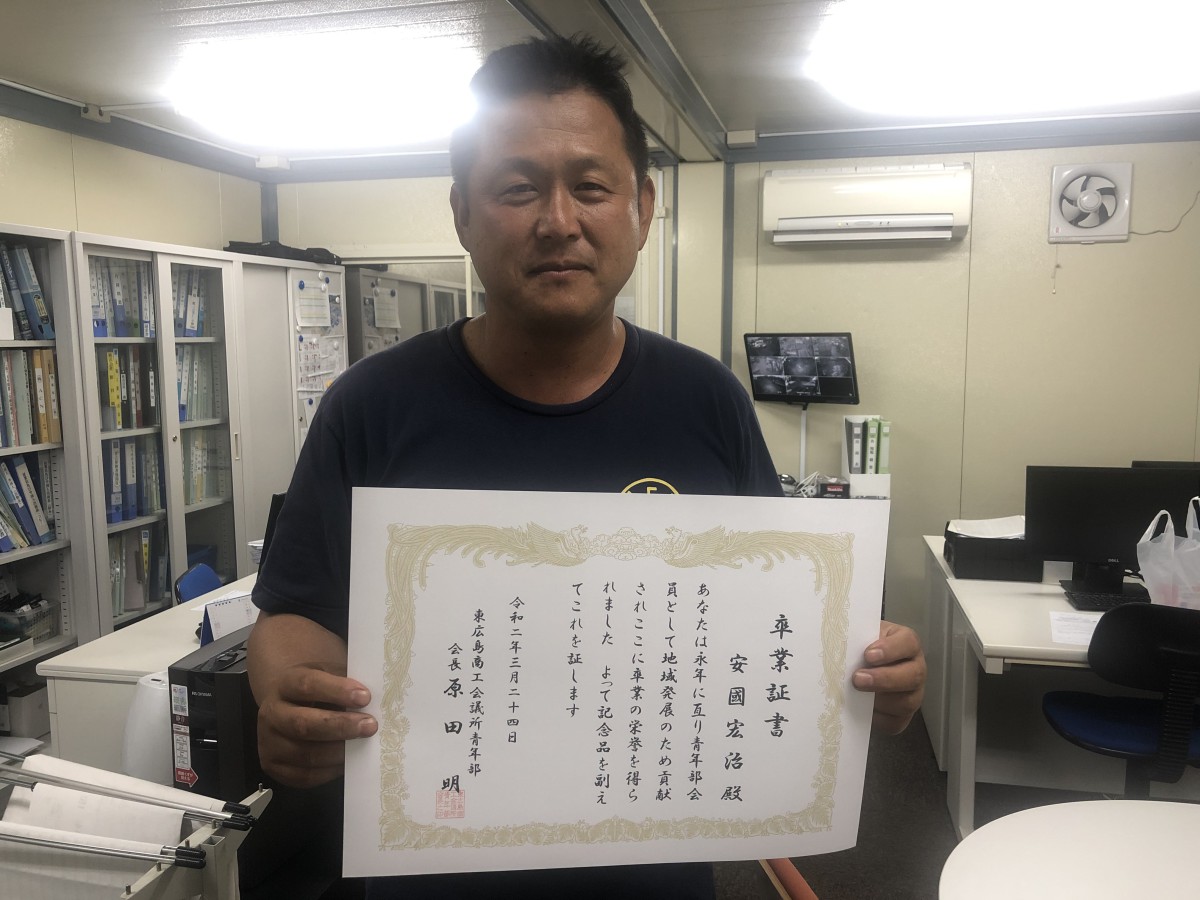 卒業証書
安國宏治殿
あなたは永年に亘り青年部会
員として地域発展のため貢献
されここに卒業の栄誉を得ら
れました よって記念品を副え
てこれを証します
令和二年三月二十四日
東広島商工会議所青年部
会長 原田 明